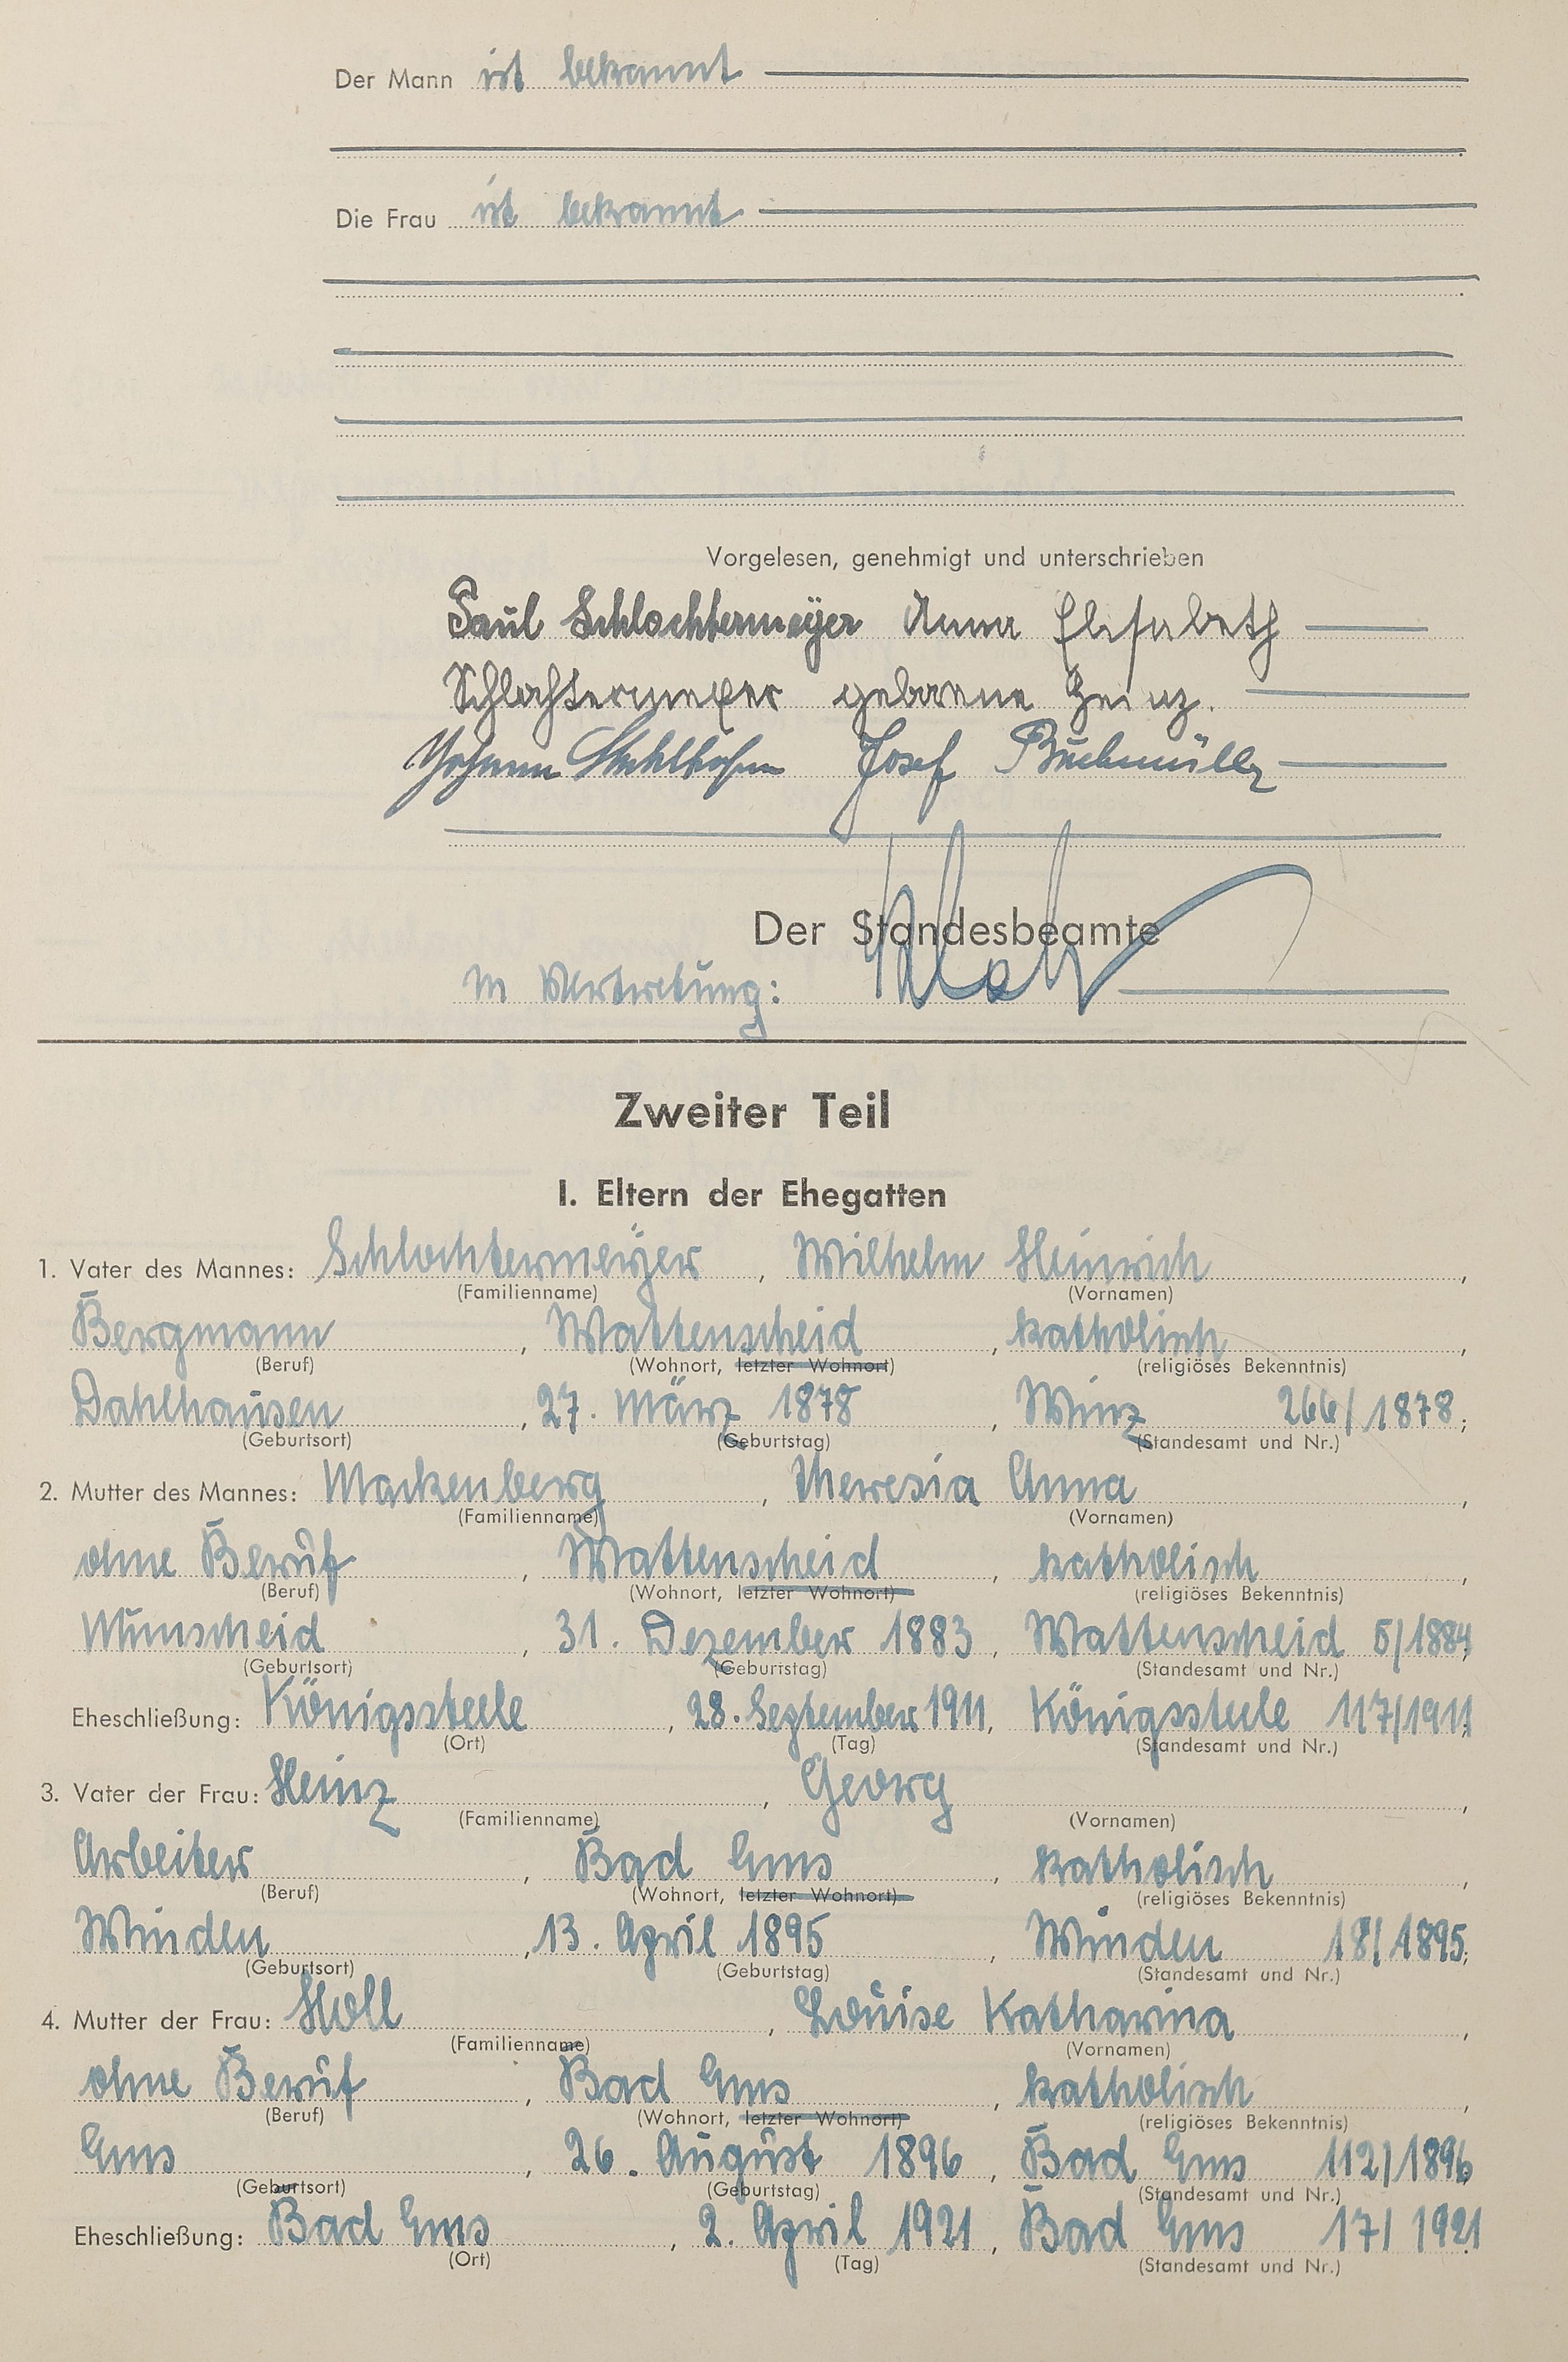 Der Mann ist bekannt
Die Frau ist bekannt
Vorgelesen, genehmigt und unterschrieben
Paul Schlochtermeÿer Anna Elisabeth
Schlochtermeyer geborene Heinz.
Johann Josef Buchmüller
Der Standesbeamte
In Vertretung:
Zweiter Teil
I. Eltern der Ehegatten
1. Vater des Mannes: Schlochtermeÿer, Wilhelm Heinrich,
(Familienname) (Vornamen)
Bergmann, Wattenscheid, katholisch,
(Beruf) (Wohnort, letzter Wohnort) (religiöses Bekenntnis)
Dahlhausen, 27. März 1878, Winz 266/1878;
(Geburtsort) (Geburtstag) (Standesamt und Nr.)
2. Mutter des Mannes: Mackenberg, Theresia Anna,
(Familienname) (Vornamen)
ohne Beruf, Wattenscheid, katholisch,
(Beruf) (Wohnort, letzter Wohnort) (religiöses Bekenntnis)
Munscheid, 31. Dezember 1883, Wattenscheid 5/1884;
(Geburtsort) (Geburtstag) (Standesamt und Nr.)
Eheschließung: Königssteele, 28. September 1911, Königssteele 117/1911;
(Ort) (Tag) (Standesamt und Nr.)
3. Vater der Frau: Heinz, Georg,
(Familienname) (Vornamen)
Arbeiter, Bad Ems, katholisch,
(Beruf) (Wohnort, letzter Wohnort) (religiöses Bekenntnis)
Winden, 13. April 1895, Winden 18/1895;
(Geburtsort) (Geburtstag) (Standesamt und Nr.)
4. Mutter der Frau: Holl, Louise Katharina,
(Familienname) (Vornamen)
ohne Beruf, Bad Ems, katholisch,
(Beruf) (Wohnort, letzter Wohnort) (religiöses Bekenntnis)
Ems, 26. August 1896, Bad Ems 112/1896;
(Geburtsort) (Geburtstag) (Standesamt und Nr.)
Eheschließung: Bad Ems, 2. April 1921, Bad Ems 17/1921.
(Ort) (Tag) (Standesamt und Nr.)